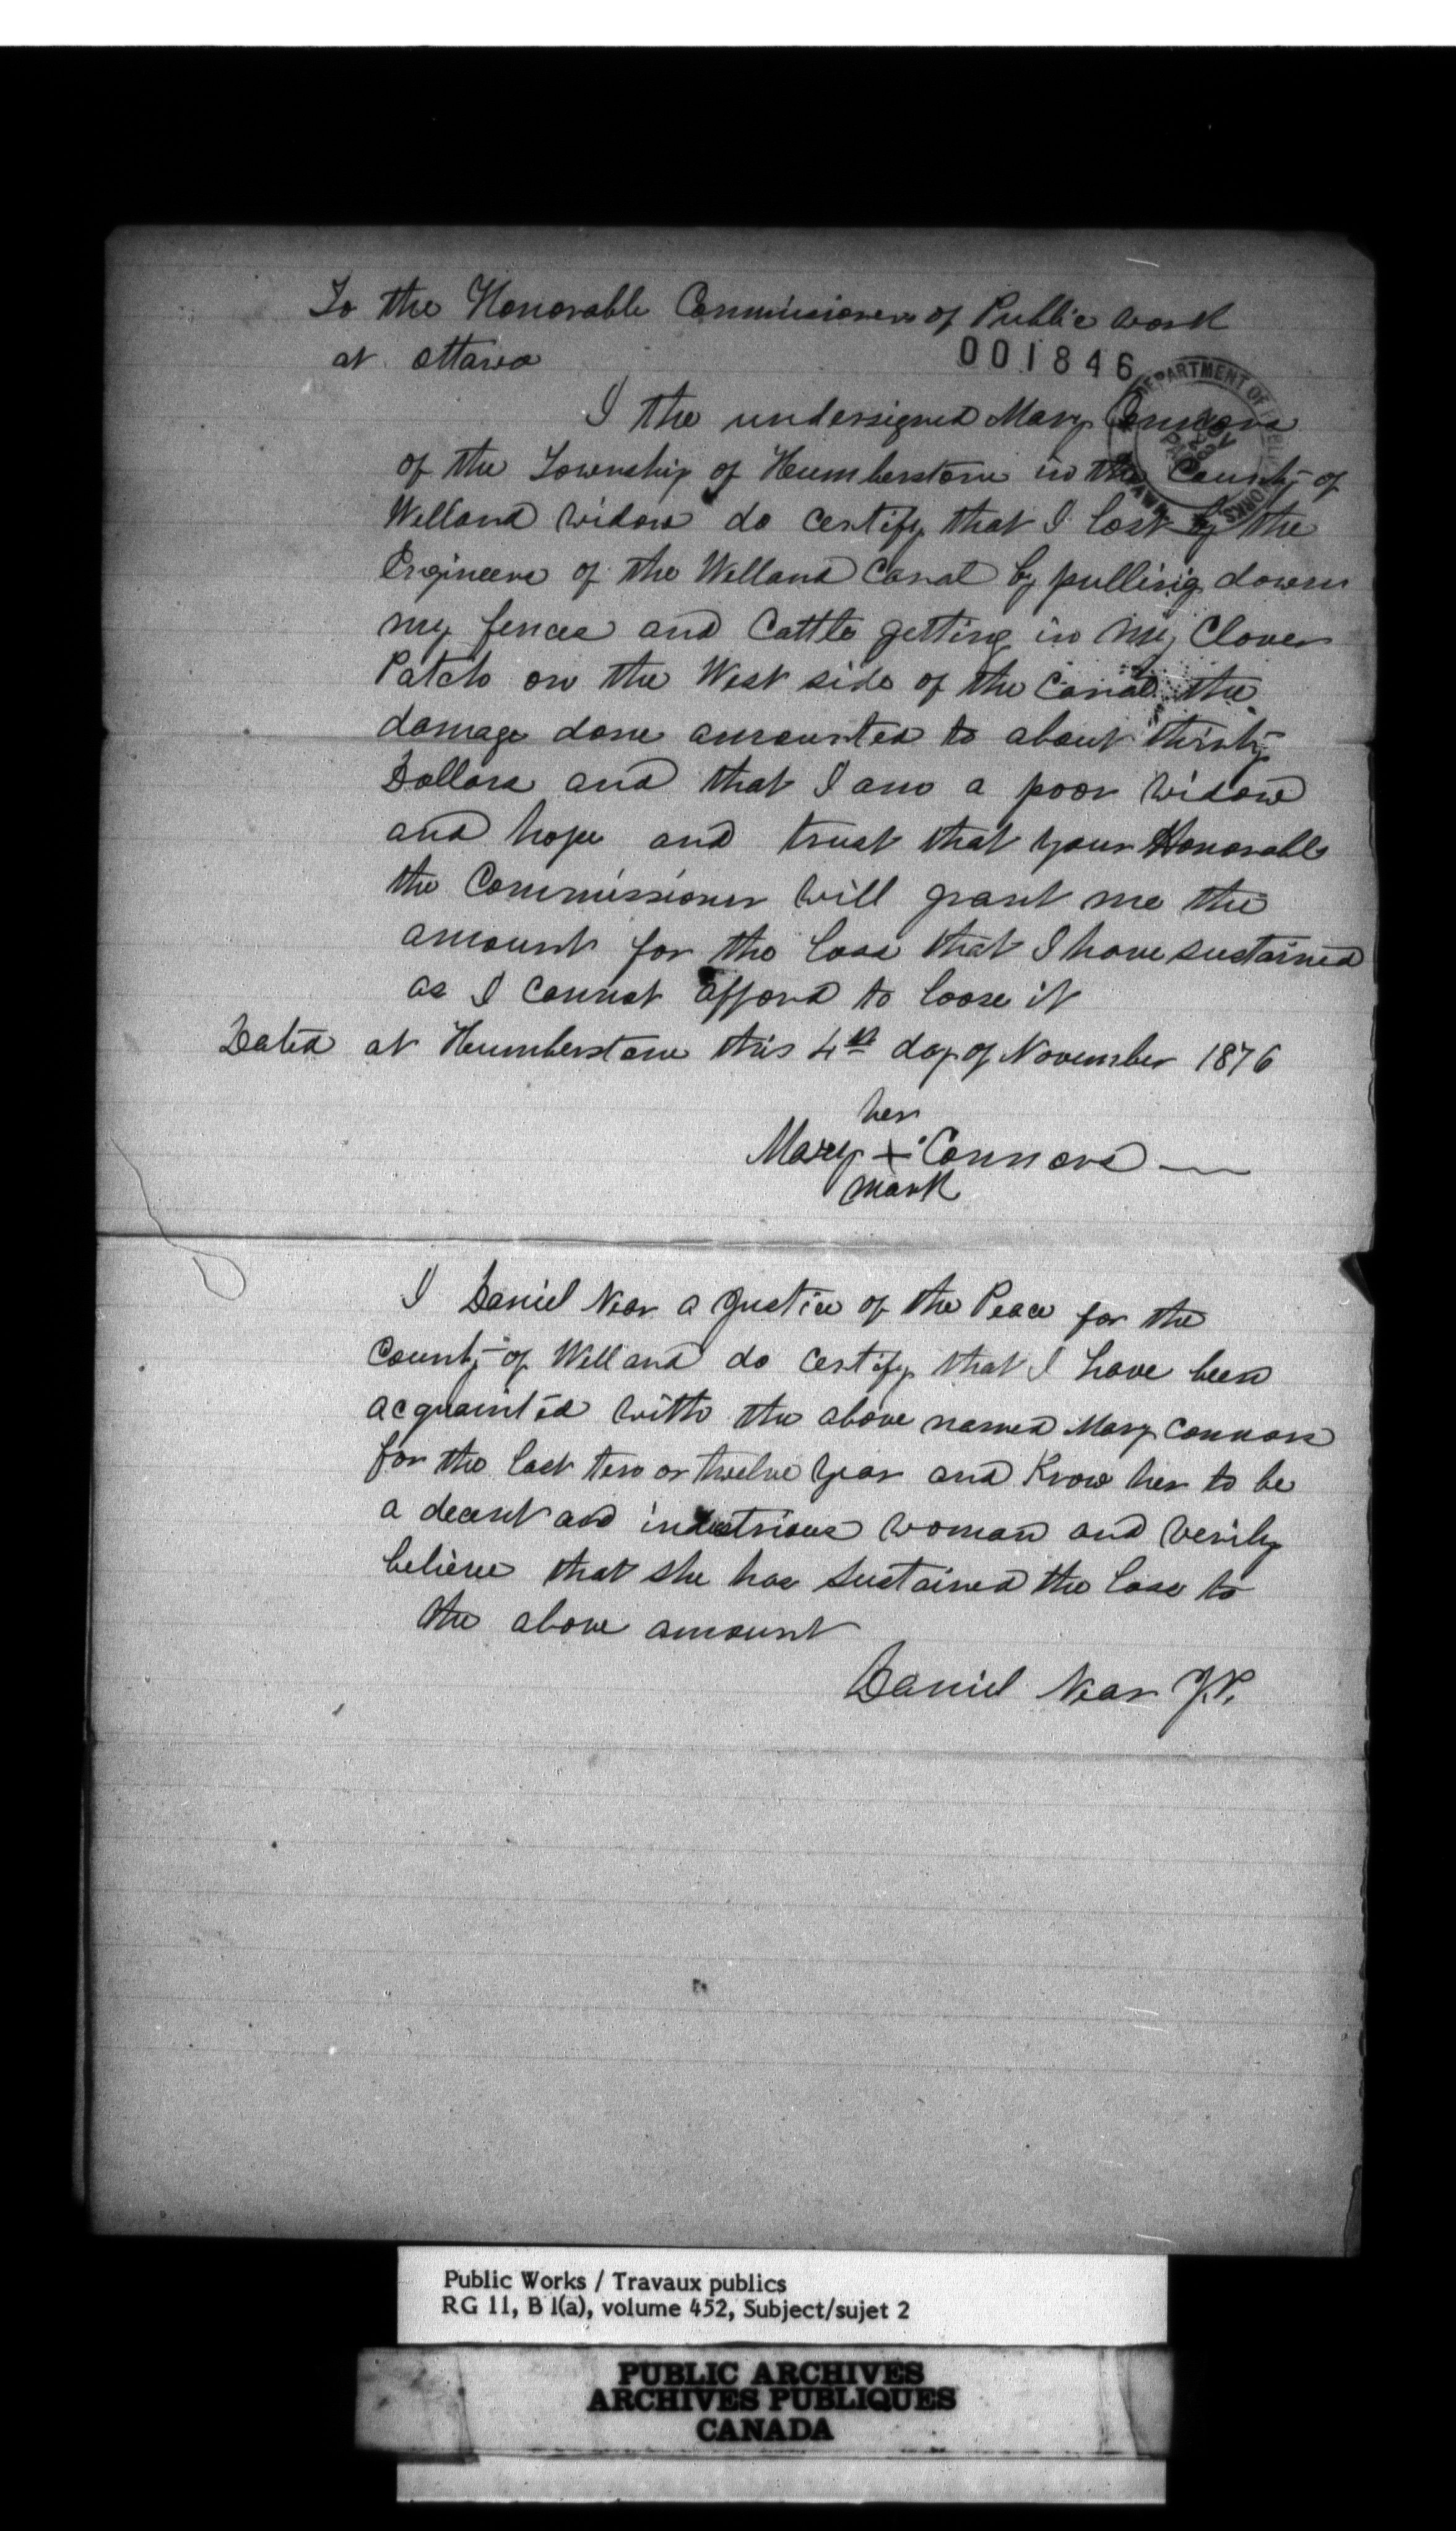 To the Honorable Commissioners of Public Work
at Ottawa
001846
DEPARTMENT OF
I the undersigned Mary Connors
of the Township of Humberstone in the County of
Welland Widow do certify that I lost by the
Engineers of the Welland Canal by pulling down
my fences and Cattle getting in my Clover
Patch on the West side of the Canal the
damage done amounted to about thirty
Dollars and that I am a poor Widow
and hope and trust that your Honorable
the Commissioner will grant me the
amount for the loss that I have sustained
as I cannot afford to loose it
Dated at Humberstone this 4th day of November 1876
her
Mary + Connors
mark
I Daniel Near a Justice of the Peace for the
County of Welland do certify that I have been
acquainted with the above named Mary Connors
for the last ten or twelve year and Know her to be
a decent and industrious woman and verily
believe that she has sustained the loss to
the above amount
Daniel Near J.P.
Public Works / Travaux publics
RG 11, B 1(a), volume 452, Subject/sujet 2
PUBLIC ARCHIVES
ARCHIVES PUBLIQUES
CANADA